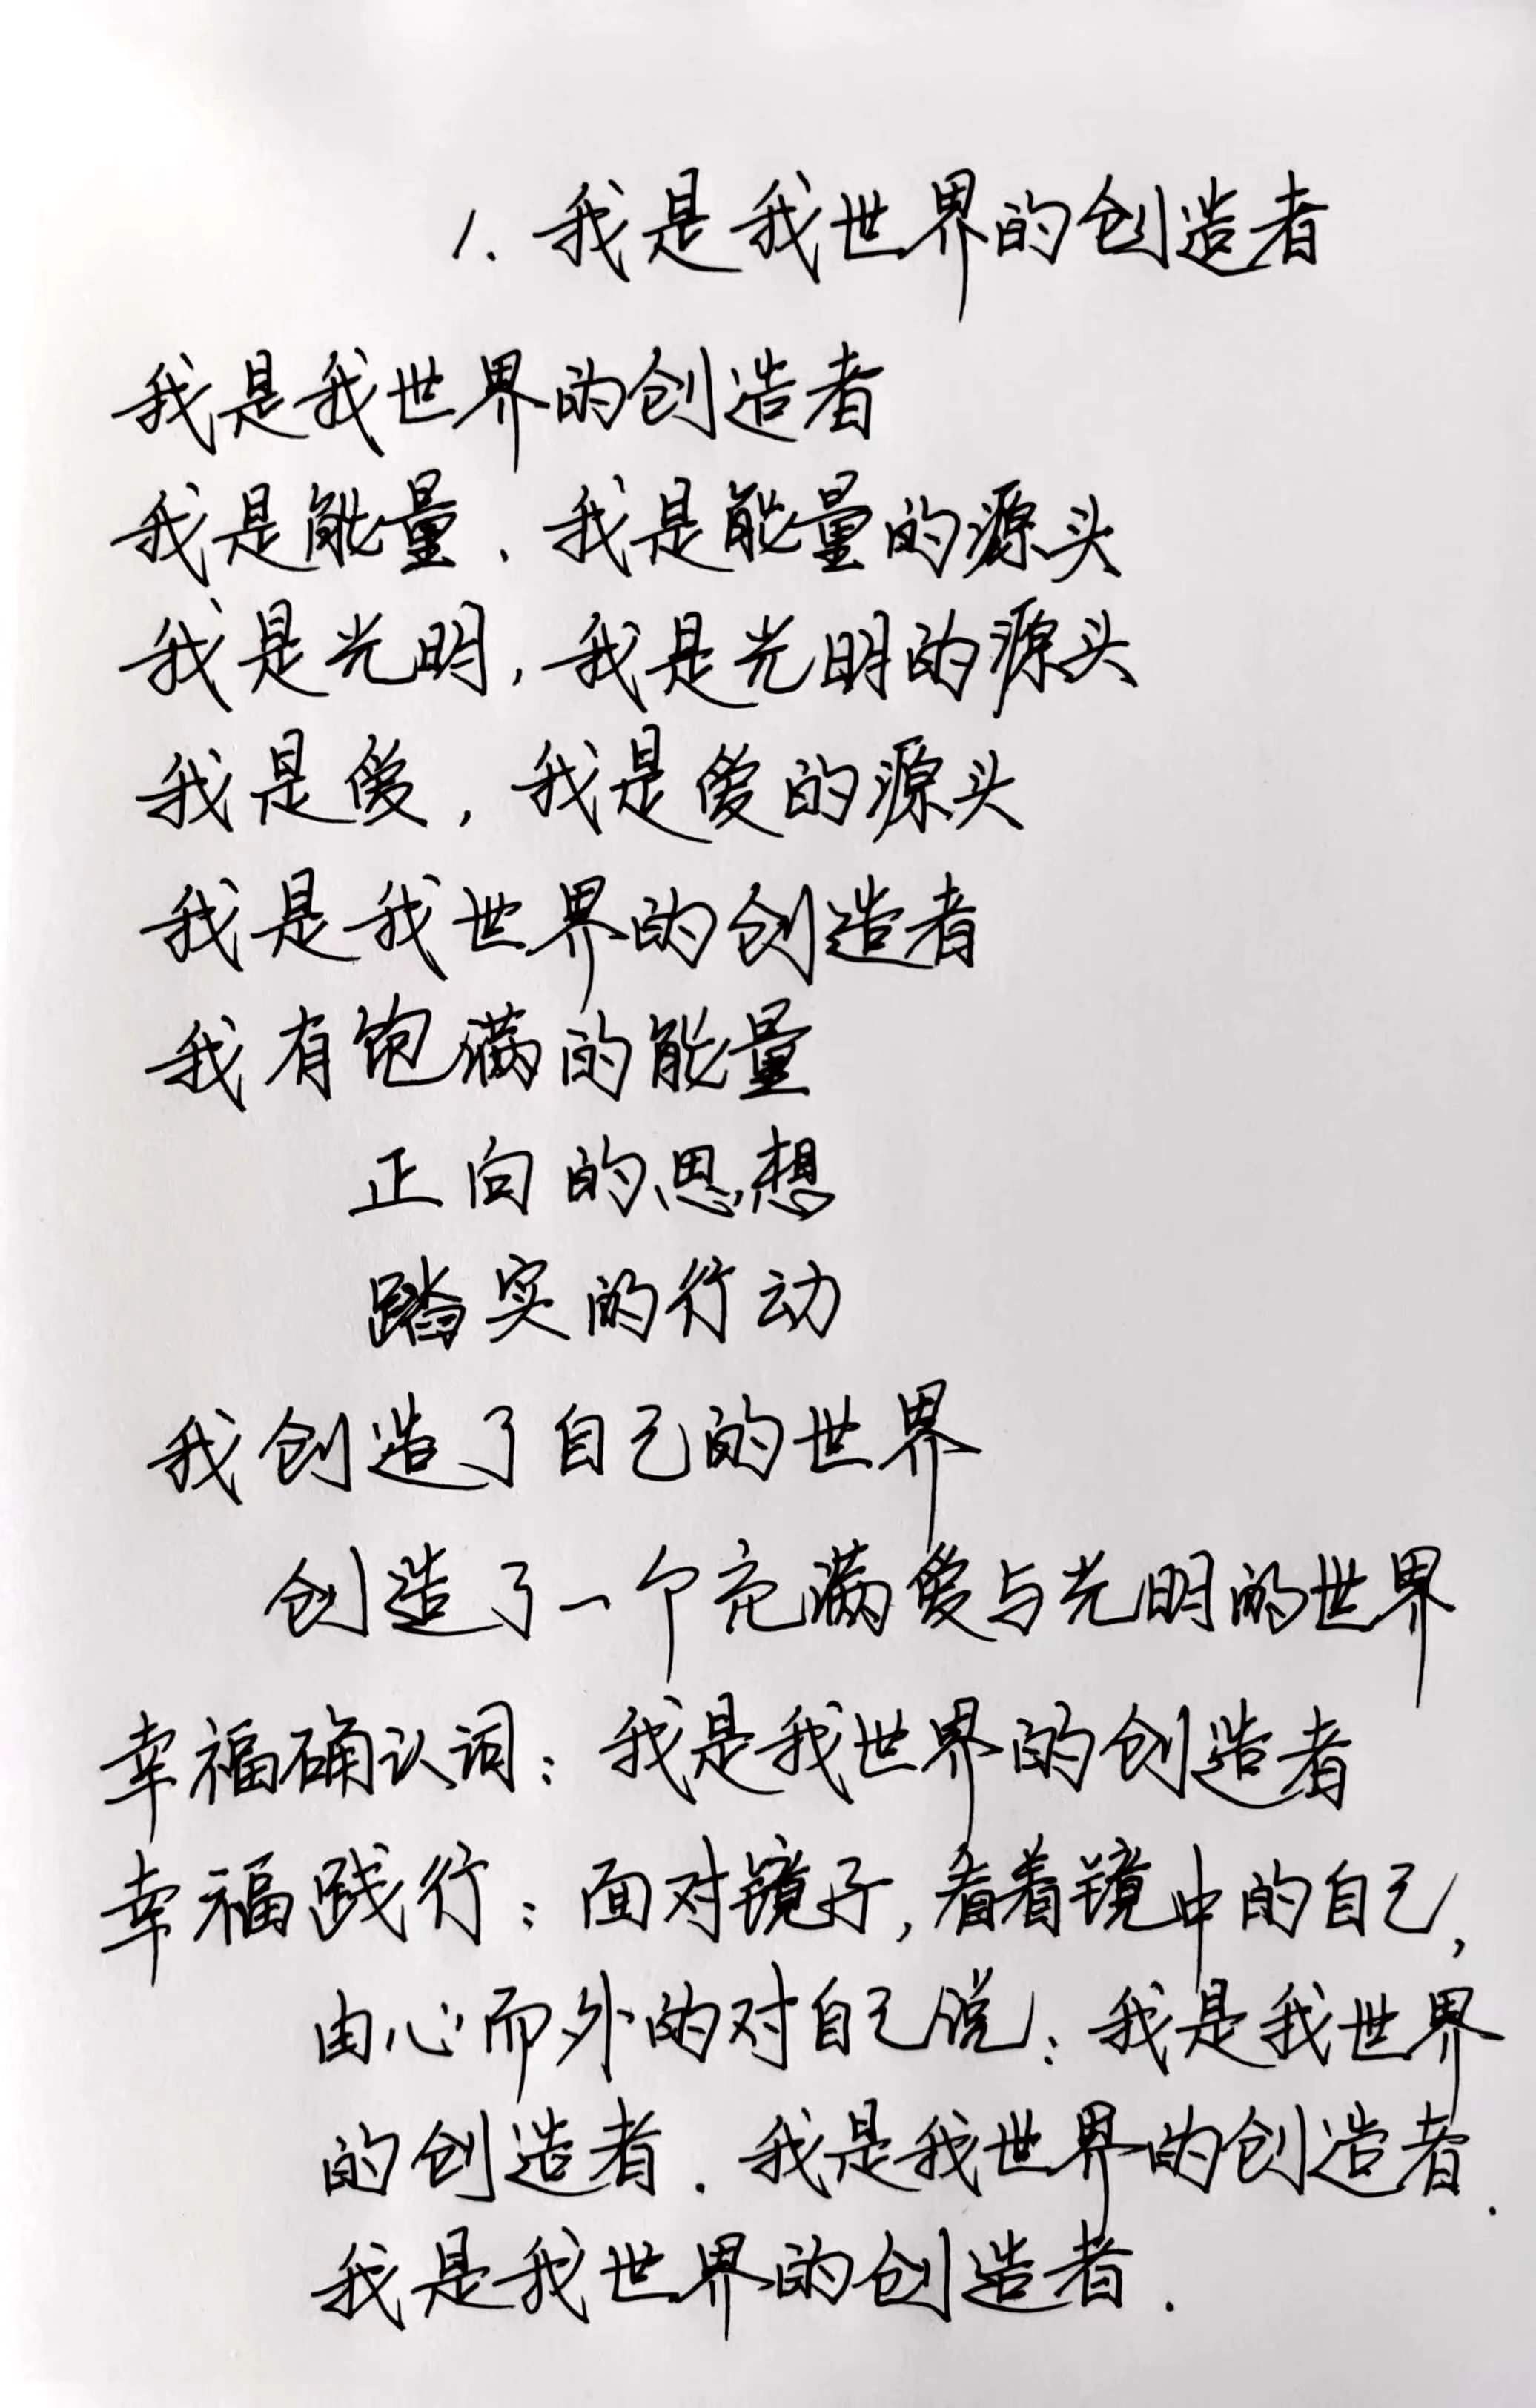 1. 我是我世界的创造者
我是我世界的创造者
我是能量，我是能量的源头
我是光明，我是光明的源头
我是爱，我是爱的源头
我是我世界的创造者
我有饱满的能量
正向的思想
踏实的行动
我创造了自己的世界
创造了一个充满爱与光明的世界
幸福确认词：我是我世界的创造者
幸福践行：面对镜子，看着镜中的自己，
由心而外的对自己说：我是我世界
的创造者．我是我世界的创造者．
我是我世界的创造者．